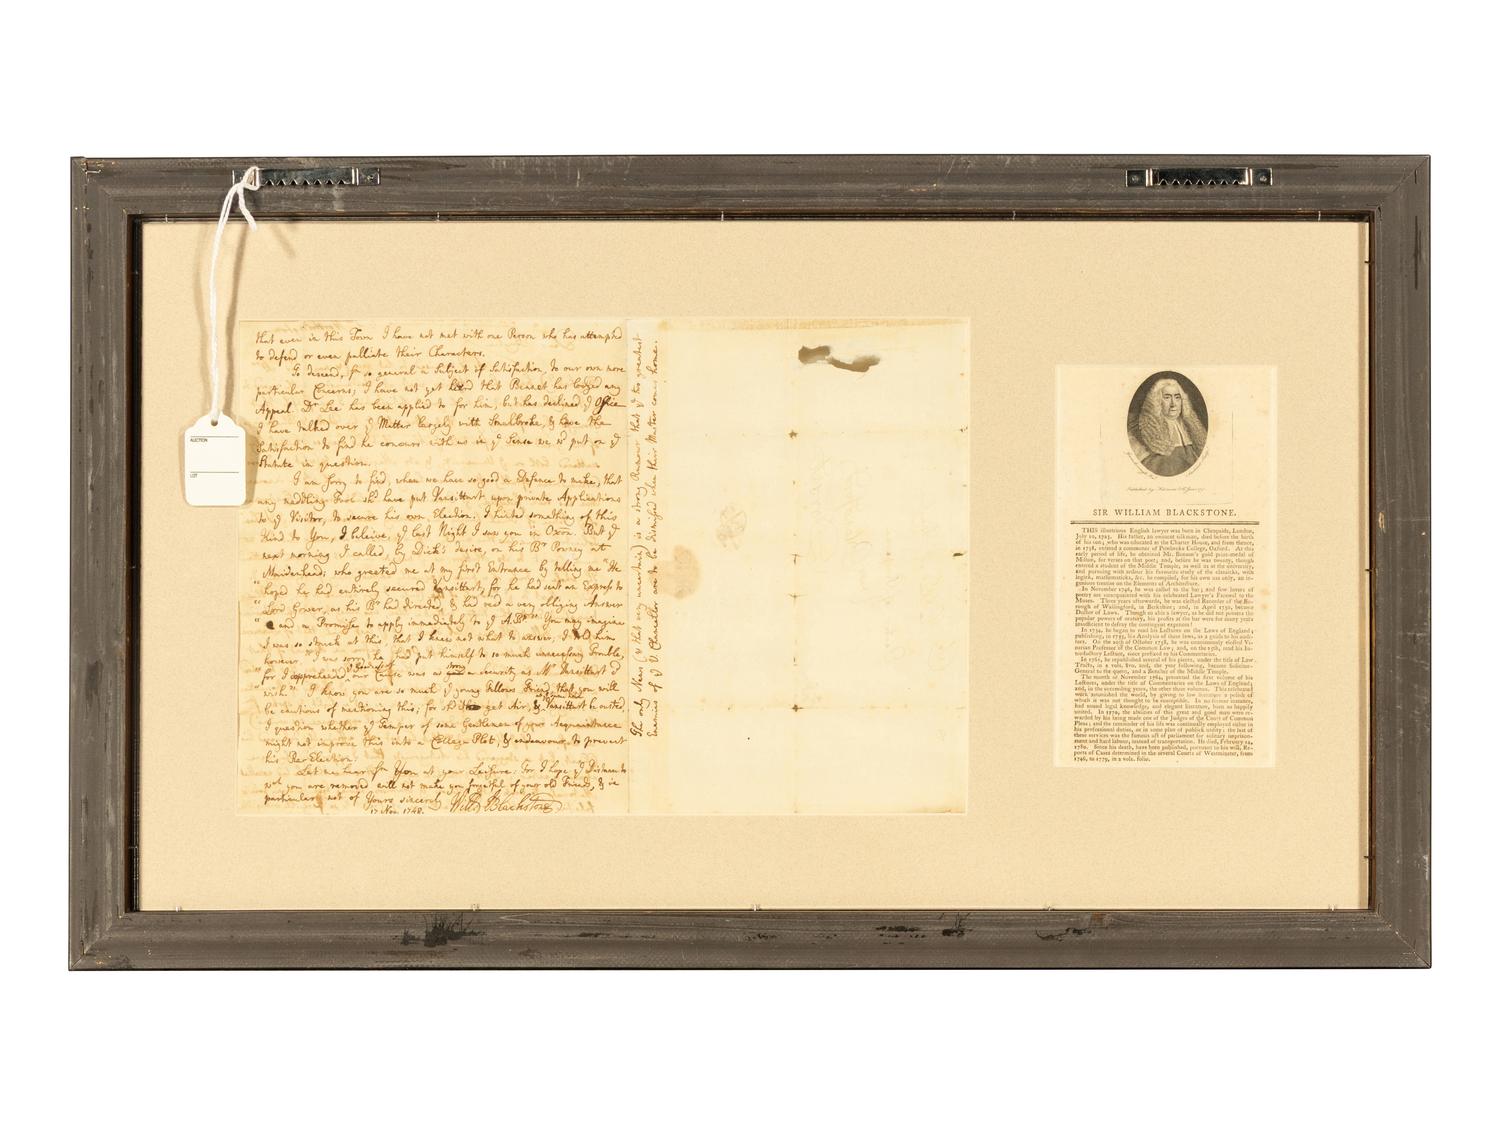 that even in this Town I have not met with one Person who has attempted
to defend or even palliate their Characters.
To descend, fm so general a Subject of Satisfaction, to our own more
particular Concerns; I have not yet heard that Bennet has lodged any
Appeal. Dr Lee has been applied to for him, but has declined ye Office
I have talked over ye Matter largely with Smalbroke, & have the
Satisfaction to find he concurs with us in ye Sense we wd put on ye
Statute in question.
I am sorry to find, when we have so good a Defence to make, that
any meddling Fool shd have put Vansittart upon private Applications
to ye Visitor, to secure his own Election. I hinted something of this
Kind to You, I beleive, ye last Night I saw you in Oxon. But ye
next morning I called, by Dick's desire, on his Br Powney at
Maidenhead; who greeted me at my first Entrance by telling me "He
hoped he had entirely secured Vansittart, for he had sent an Express to
"Lord Gower, as his Br had directed, & had recd a very obliging Answer
" and a Promise to apply immediately to ye ABp". You may imagine
I was so struck at this that I knew not what to answer, I told him
however I was sorry he had put himself to so much unnecessary Trouble,
for I apprehended ye Goodness of our Cause was as strong a Security as Mr Vansittart cd
"wish". I know you are so much ye young Fellows Friend, that you will
be cautious of mentioning this; for shd it get Air, & Vansittart be ousted,
I question whether ye Temper of some Gentlemen of your Acquaintance
might not improve this into a College Plot, & endeavour to prevent
his Re-Election.
Let me hear fm You at your Leisure: For I hope ye Distance to
wch you are removed will not make you forgetful of your old Friends, & in
particular not of Yours sincerely Will Blackstone
17 Nov. 1748.
The only News (& that very uncertain) is a strong Rumour that ye two greatest
Enemies of ye V. Chancellor are to be dismissed when their Master comes home.
AUCTION
LOT
SIR WILLIAM BLACKSTONE.
THIS illustrious English lawyer was born in Cheapside, London,
July 10, 1723. His father, an eminent silkman, died before the birth
of his son; who was educated at the Charter House, and from thence,
in 1738, entered a commoner of Pembroke College, Oxford. At this
early period of life, he obtained Mr. Benson's gold prize-medal of
Milton, for verses on that poet; and, before he was twenty, though
entered a student of the Middle Temple, as well as at the university,
and pursuing with ardour his favourite study of the classicks, with
logick, mathematicks, &c. he compiled, for his own use only, an in-
genious treatise on the Elements of Architecture.
In November 1746, he was called to the bar; and few lovers of
poetry are unacquainted with his celebrated Lawyer's Farewel to the
Muses. Three years afterwards, he was elected Recorder of the Bo-
rough of Wallingford, in Berkshire; and, in April 1750, became
Doctor of Laws. Though so able a lawyer, as he did not possess the
popular powers of oratory, his profits at the bar were for many years
insufficient to defray the contingent expences!
In 1754, he began to read his Lectures on the Laws of England;
publishing, in 1755, his Analysis of these laws, as a guide to his audi-
tors. On the 20th of October 1758, he was unanimously elected Vi-
nerian Professor of the Common Law; and, on the 25th, read his In-
troductory Lecture, since prefixed to his Commentaries.
In 1761, he republished several of his pieces, under the title of Law
Tracts, in 2 vols. 8vo. and, the year following, became Solicitor-
General to the queen, and a Bencher of the Middle Temple.
The month of November 1764, presented the first volume of his
Lectures, under the title of Commentaries on the Laws of England;
and, in the succeeding years, the other three volumes. This celebrated
work astonished the world, by giving to law literature a polish of
which it was not thought to be susceptible. In no former instance,
had sound legal knowledge, and elegant literature, been so happily
united. In 1770, the abilities of this great and good man were re-
warded by his being made one of the Judges of the Court of Common
Pleas; and the remainder of his life was continually employed either in
his professional duties, or in some plan of publick utility: the last of
these services was the famous act of parliament for solitary imprison-
ment and hard labour, instead of transportation. He died, February 14,
1780. Since his death, have been published, pursuant to his will, Re-
ports of Cases determined in the several Courts of Westminster, from
1746, to 1779, in 2 vols. folio.